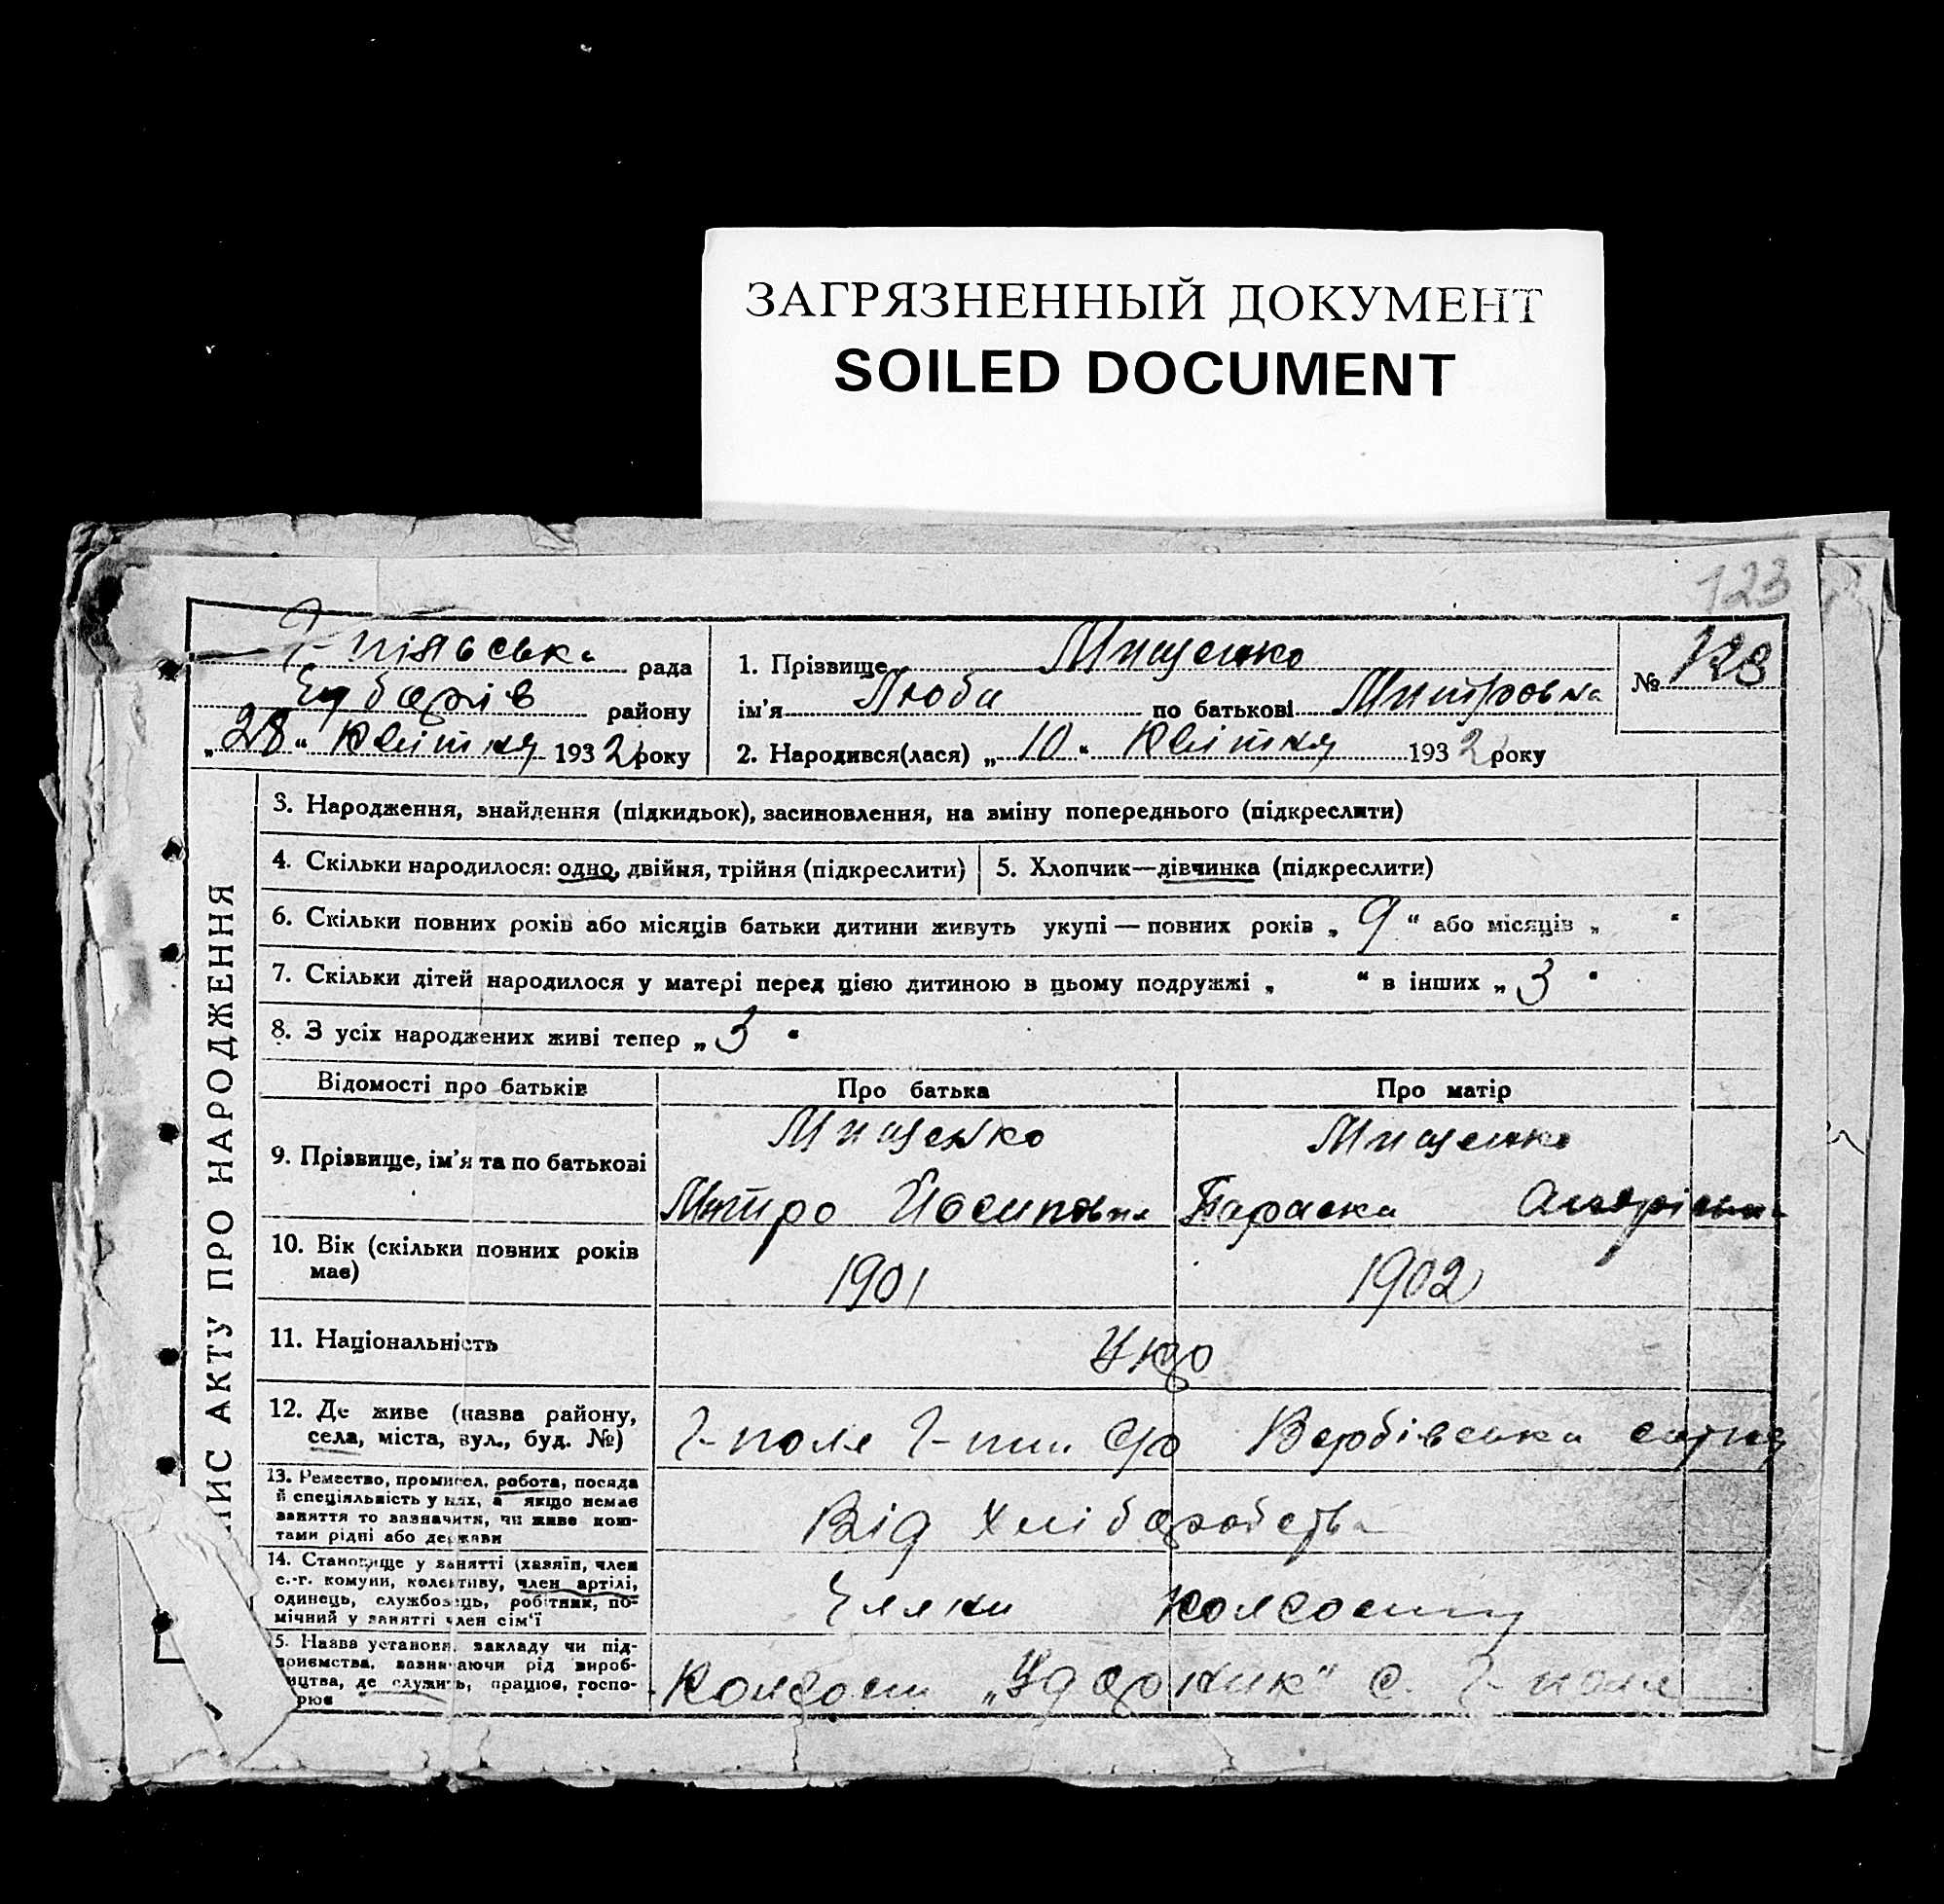 ЗАГРЯЗНЕННЫЙ ДОКУМЕНТ
SOILED DOCUMENT
123
рада
району
„28“ Квітня 1932 року
1. Прізвище Мищенко
ім'я Люба по батькові Митровна
2. Народився(лася) „10“ Квітня 1932 року
№ 128
ПИС АКТУ ПРО НАРОДЖЕННЯ
3. Народження, знайдення (підкидьок), засиновлення, на зміну попереднього (підкреслити)
4. Скільки народилося: одно, двійня, трійня (підкреслити)
5. Хлопчик—дівчинка (підкреслити)
6. Скільки повних років або місяців батьки дитини живуть укупі — повних років „9“ або місяців „ “
7. Скільки дітей народилося у матері перед цією дитиною в цьому подружжі „ “ в інших „3“
8. З усіх народжених живі тепер „3“
Відомості про батьків Про батька Про матір
9. Прізвище, ім'я та по батькові
Мищенко Мищенко
Митро Параска
10. Вік (скільки повних років
має)
1901 1902
11. Національність
Укр
12. Де живе (назва району,
села, міста, вул., буд. №)
Г-поле Вербівська
13. Ремество, промисел, робота, посада
й спеціяльність у них, а якщо немає
заняття то зазначити, чи живе кош-
тами рідні або держави
Від Хліборобства
14. Становище у занятті (хазяїн, член
с.-г. комуни, колективу, член артілі,
одинець, службовець, робітник, по-
мічний у занятті член сім'ї
Члени колгоспу
15. Назва установи, закладу чи під-
приємства, зазначаючи рід вироб-
ництва, де служить, працює, госпо-
рює
Колгосп „Ударник“ с. Г-поле